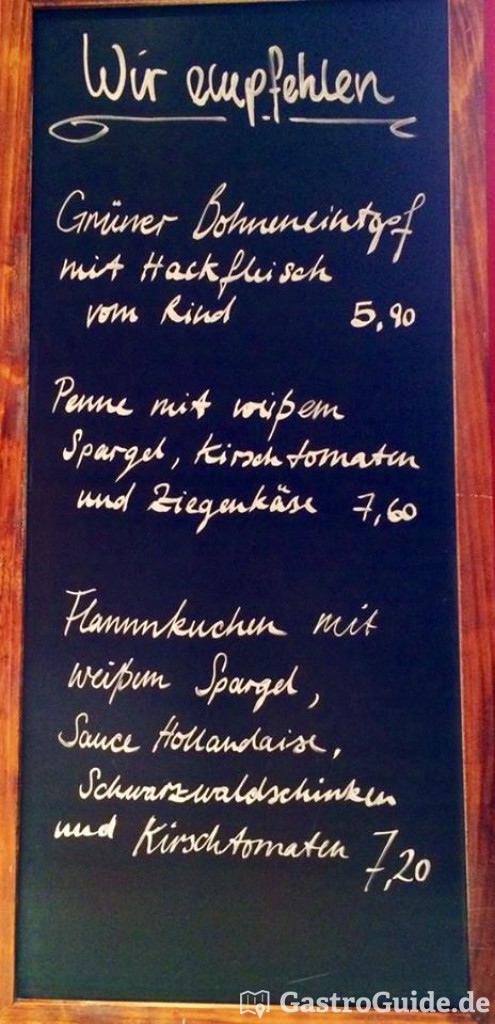 Wir empfehlen
Grüner Bohneneintopf
mit Hackfleisch
vom Rind 5,90
Penne mit weißem
Spargel, Kirschtomaten
und Ziegenkäse 7,60
Flammkuchen mit
weißem Spargel,
Sauce Hollandaise,
Schwarzwaldschinken
und Kirschtomaten 7,20
GastroGuide.de